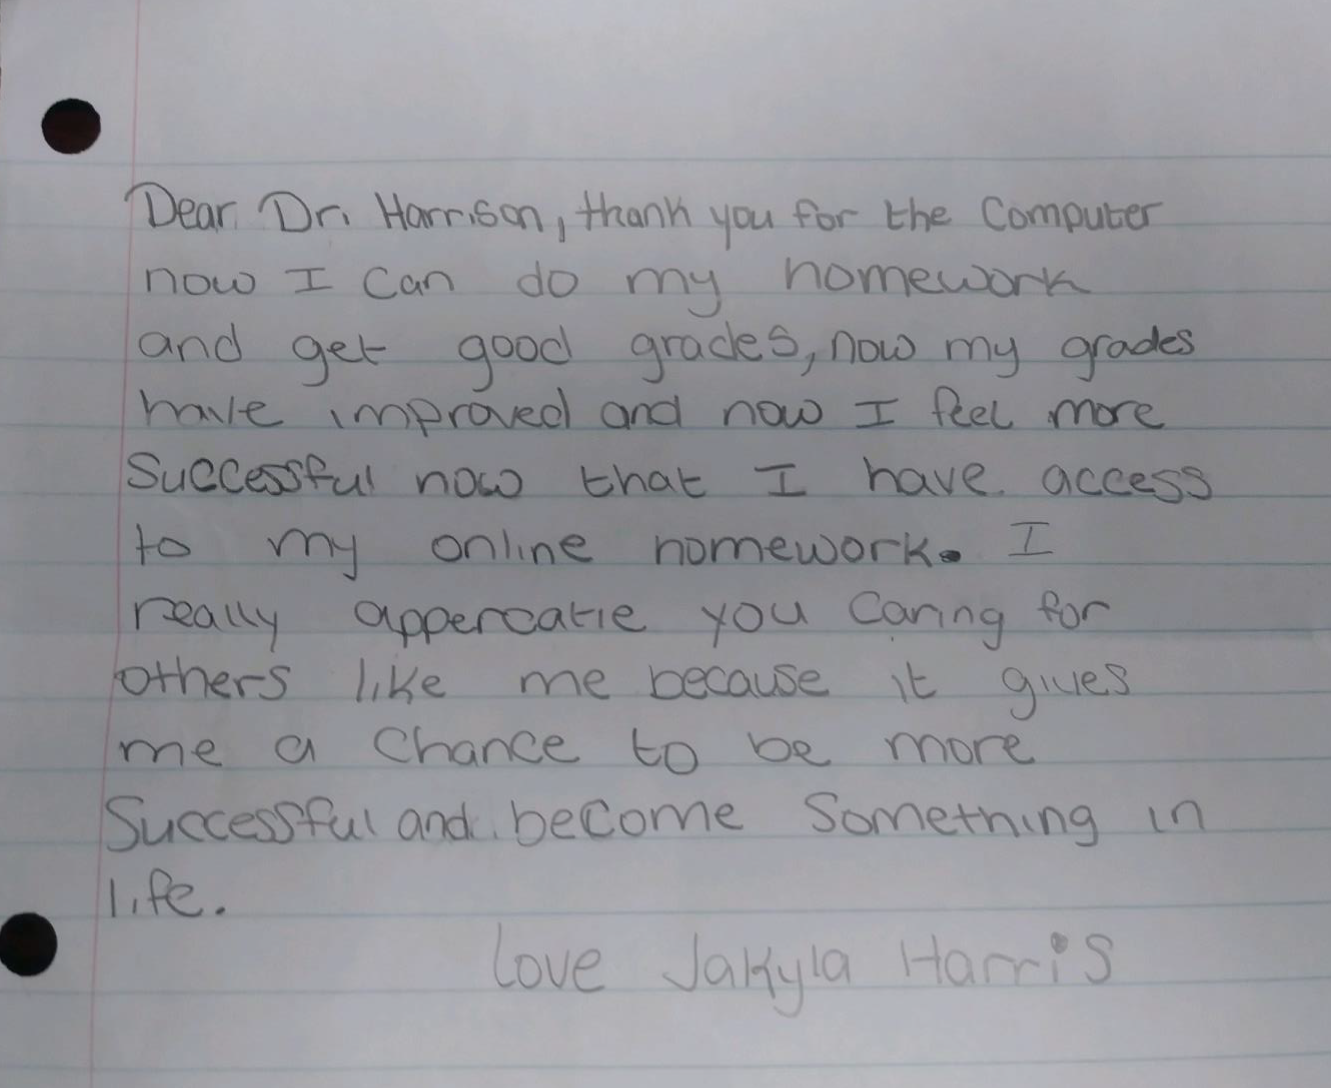 Dear Dr. Harrison, thank you for the Computer
now I can do my homework
and get good grades, now my grades
have improved and now I feel more
Successful now that I have access
to my online homework. I
really appercatie you caring for
others like me because it gives
me a chance to be more
Successful and become Something in
life.
Love Jakyla Harris